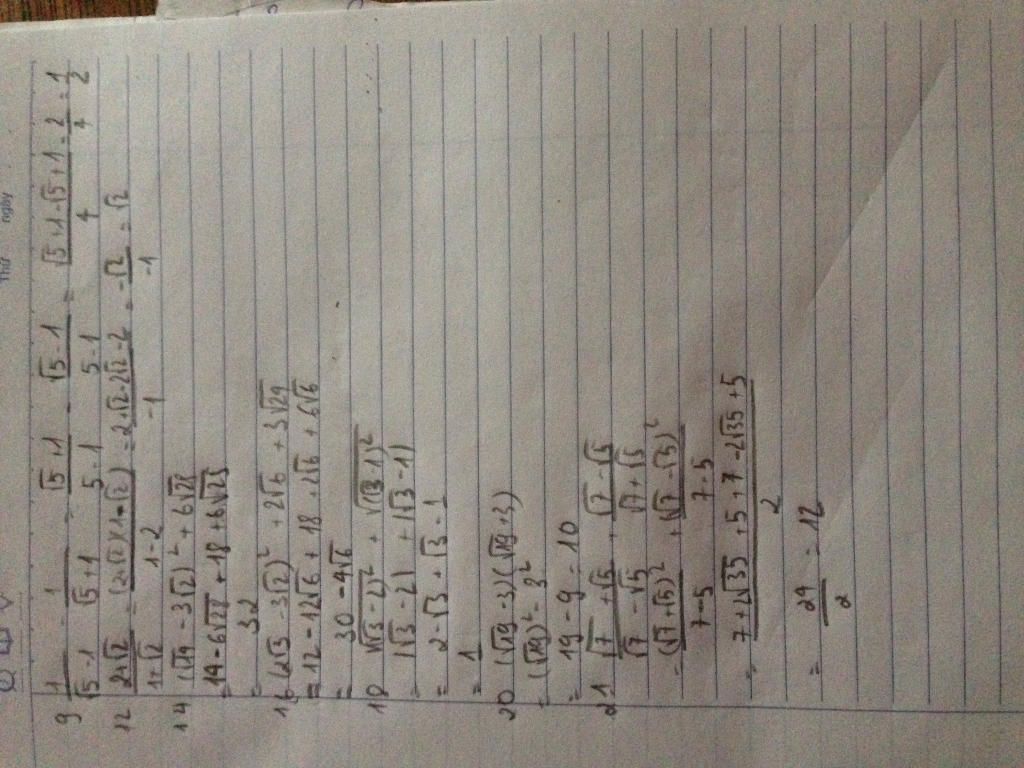 Thứ ngày
9 1/(√5-1) - 1/(√5+1) = (√5+1)/(5-1) - (√5-1)/(5-1) = (√5+1-√5+1)/4 = 2/4 = 1/2
12 (2+√2)/(1+√2) = (2+√2)(1-√2)/(1-2) = (2+√2-2√2-2)/-1 = -√2/-1 = √2
14 (√14 - 3√2)² + 6√28
= 14 - 6√28 + 18 + 6√28
= 32
16 (2√3 - 3√2)² + 2√6 + 3√24
= 12 - 12√6 + 18 + 2√6 + 6√6
= 30 - 4√6
18 √(√3-2)² + √(√3-1)²
= |√3-2| + |√3-1|
= 2-√3 + √3-1
= 1
20 (√19-3)(√19+3)
= (√19)² - 3²
= 19 - 9 = 10
21 (√7+√5)/(√7-√5) + (√7-√5)/(√7+√5)
= (√7+√5)²/(7-5) + (√7-√5)²/(7-5)
= (7+2√35+5+7-2√35+5)/2
= 24/2 = 12